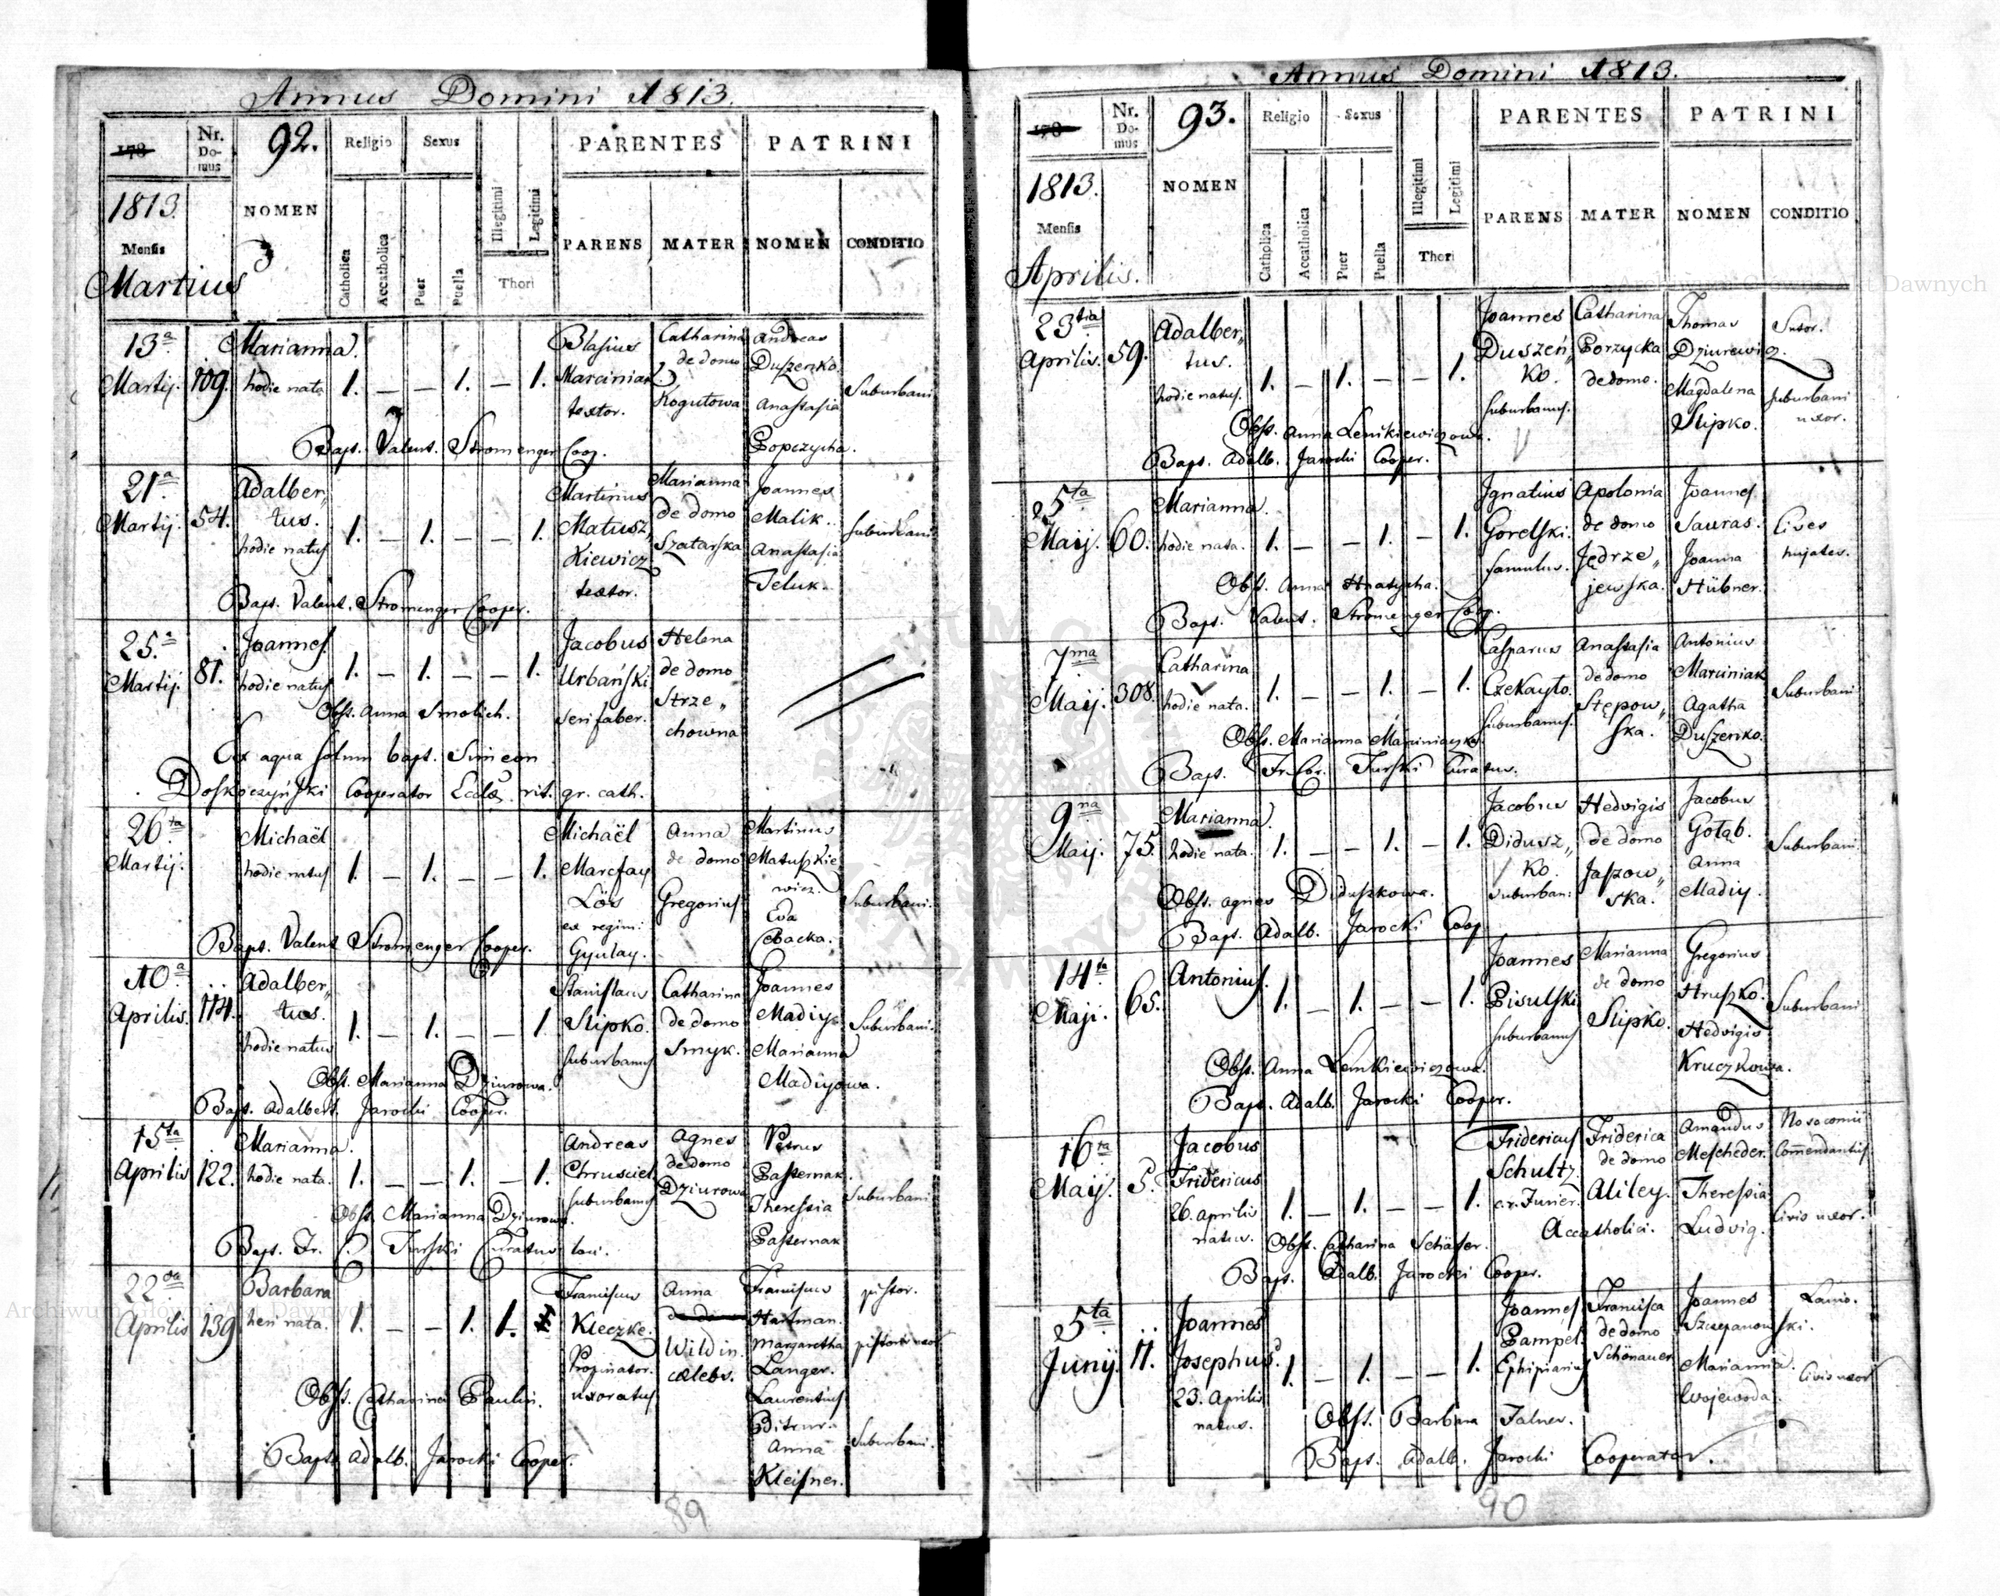 Annus Domini 1813.
178
Nr. Domus
92.
Religio
Sexus
PARENTES
PATRINI
1813.
Mensis
Martius
NOMEN
Catholica
Accatholica
Puer
Puella
Illegitimi
Legitimi
Thori
PARENS
MATER
NOMEN
CONDITIO
13a Martij.
109.
Marianna.
hodie nata
1. — — 1. — 1.
Blasius
Marciniak
textor.
Catharina
de domo
Kogutowa
Andreas
Duszenko.
Anastasia
Popczycha.
Suburbani
Baps. Valent. Stromenger Coop.
21a Martij.
54.
Adalber„
tus.
hodie natus
1. — 1. — — 1.
Martinus
Matusz„
Kiewicz
textor.
Marianna
de domo
Szatarska
Joannes
Malik.
Anastasia
Teluk.
Suburbani
Baps. Valent. Stromenger Cooper.
25a Martij.
81.
Joannes.
hodie natus
1. — 1. — — 1.
Jacobus
Urbański
serifaber.
Helena
de domo
Strze„
chowna
Obst. Anna Smolich.
Ex aqua solum bapt. Simeon
Doskoczyński Cooperator Eccl. rit. gr. cath.
26ta Martij.
Michaël
hodie natus
1. — 1. — — 1.
Michaël
Marcfay
Lös
ex regim:
Gyulay.
Anna
de domo
Gregorius
Martinus
Matuszkie
wicz.
Eva
Cebacka.
Suburbani.
Baps. Valent Stromenger Cooper.
10a Aprilis.
114.
Adalber„
tus.
hodie natus
1. — 1. — — 1.
Stanislaus
Slipko.
suburbanus
Catharina
de domo
Smyk.
Joannes
Madiy
Marianna
Madiyowa.
Suburbani.
Obst. Marianna Dziurowa.
Baps. Adalbert. Jarocki Cooper.
15ta Aprilis
122.
Marianna.
hodie nata.
1. — — 1. — 1.
Andreas
Chrusciel.
suburbanus
Agnes
de domo
Dziurowa
Petrus
Pasternak.
Theressia
Pasternak
Suburbani
Obst. Marianna Dziurowa.
Baps. Fr. Turski Curatus loci.
22da Aprilis
139.
Barbara
heri nata.
1. — — 1. 1.
Franciscus
Kleczke.
Propinator.
uxoratus
Anna
Wildin.
cælebs.
Franciscus
Hartman.
Margaretha
Langer.
Laurentius
Anna
Kleisner.
pistor.
pistoris uxor
Suburbani.
Obst. Catharina Paulin.
Baps. Adalb. Jarocki Cooper.
89
Annus Domini 1813.
178
Nr. Domus
93.
Religio
Sexus
PARENTES
PATRINI
1813.
Mensis
Aprilis.
NOMEN
Catholica
Accatholica
Puer
Puella
Illegitimi
Legitimi
Thori
PARENS
MATER
NOMEN
CONDITIO
23tia Aprilis.
59.
Adalber„
tus.
hodie natus.
1. — 1. — — 1.
Joannes
Duszeń„
ko.
suburbanus.
Catharina
Porzycka
de domo.
Thomas
Dziurewicz.
Magdalena
Slipko.
Sutor.
suburbani
uxor.
Obst. Anna Lenikiewiczowa.
Baps. Adalb. Jarocki Cooper.
5ta Maij.
60.
Marianna.
hodie nata.
1. — — 1. — 1.
Ignatius
Gorelski.
famulus.
Apolonia
de domo
Jędrze„
jewska.
Joannes
Sauras.
Joanna
Hübner.
Cives
hujates.
Obst. Anna Hnatycha.
Baps. Valent. Stromenger Coop.
7ma Maij.
308.
Catharina
hodie nata.
1. — — 1. — 1.
Casparus
Czekayło.
suburbanus.
Anastasia
de domo
Stępow„
ska.
Antonius
Marciniak
Agatha
Duszenko.
Suburbani
Obst. Marianna Marciniaczka
Baps. Fr. Cor. Turski Curatus.
9na Maij.
75.
Marianna.
hodie nata.
1. — — 1. — 1.
Jacobus
Didusz„
ko.
suburban:
Hedvigis
de domo
Jaszow„
ska.
Jacobus
Gołąb.
Anna
Madiy.
Suburbani
Obst. Agnes Diduszkowa.
Baps. Adalb. Jarocki Coop
14ta Maji.
65.
Antonius.
1. — 1. — — 1.
Joannes
Pisulski
suburbanus
Marianna
de domo
Slipko.
Gregorius
Hruszko.
Hedvigis
Kruczkowa.
Suburbani
Obst. Anna Lemkiewiczowa.
Baps. Adalb. Jarocki Cooper.
16ta Maij.
5.
Jacobus
Fridericus
26. Aprilis
natus.
1. — 1. — — 1.
Fridericus
Schultz
ex. Furier.
Friderica
de domo
Aliley.
Accatholici.
Amandus
Mescheder.
Theressia
Ludvig.
Nosocomii
Commendantus.
Civis uxor.
Obst. Catharina Schäfer.
Baps. Adalb. Jarocki Cooper.
5ta Junij.
11.
Joannes
Josephus.
23. Aprilis
natus.
1. — 1. — — 1.
Joannes
Pampel
Ephipiarius
Francisca
de domo
Schönauer
Joannes
Szczepanowski.
Marianna.
Wojewoda.
Lanio.
Civis uxor
Obst. Barbara Falner.
Baps. Adalb. Jarocki Cooperator.
90
Archiwum Główne Akt Dawnych
Archiwum Główne Akt Dawnych